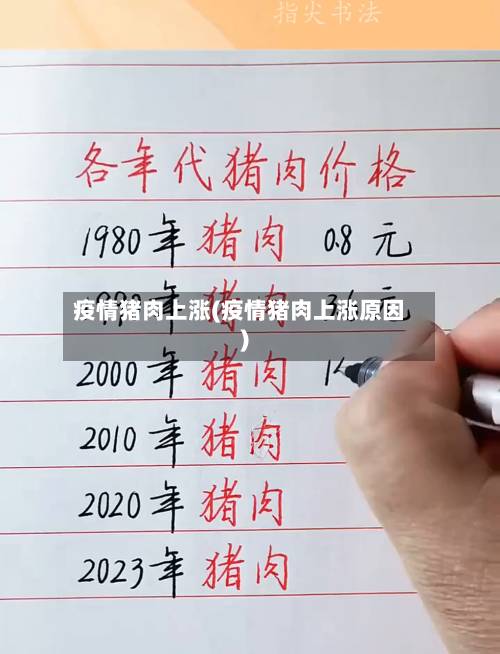 指尖书法
各年代猪肉价格
1980年 猪肉 0.8 元
疫情猪肉上涨(疫情猪肉上涨原因
)
2000年 猪肉
2010年 猪肉
2020年 猪肉
2023年 猪肉